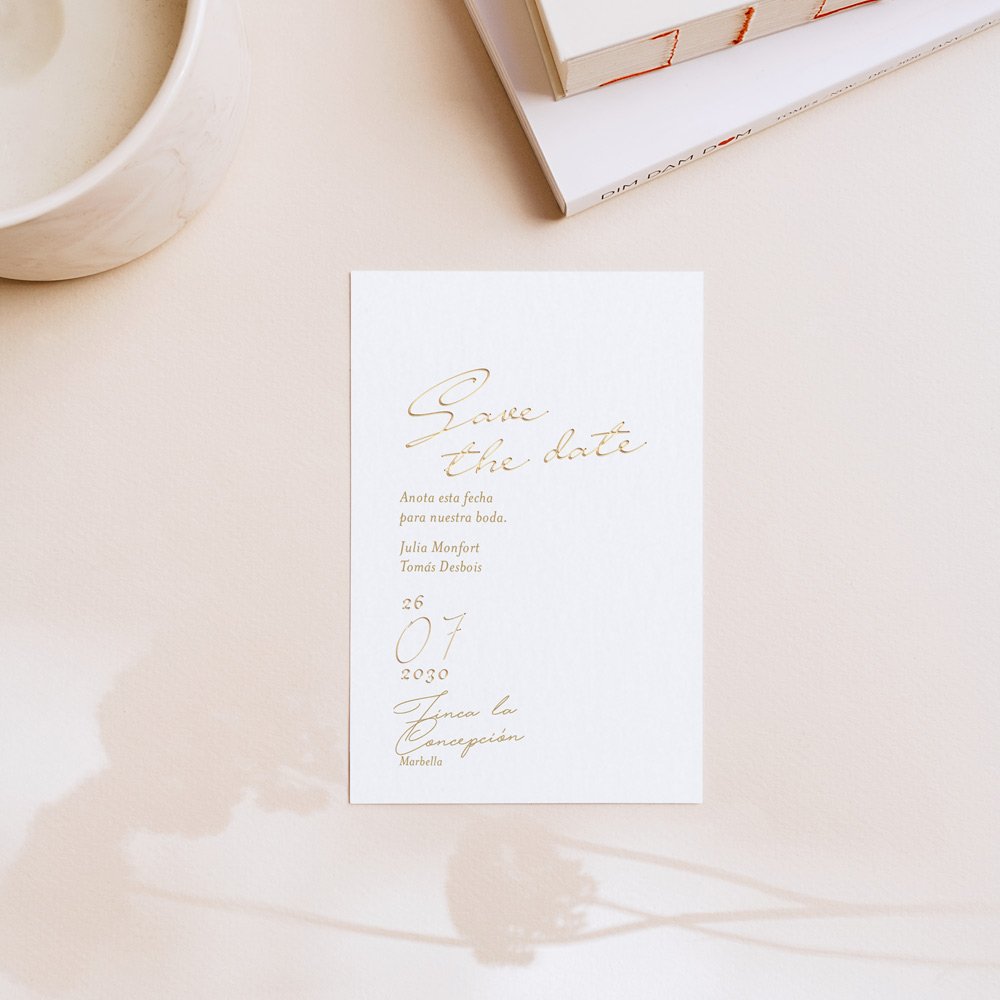 DIM DAM DOM
Save
the date
Anota esta fecha
para nuestra boda.
Julia Monfort
Tomás Desbois
26
07
2030
Finca la
Concepción
Marbella